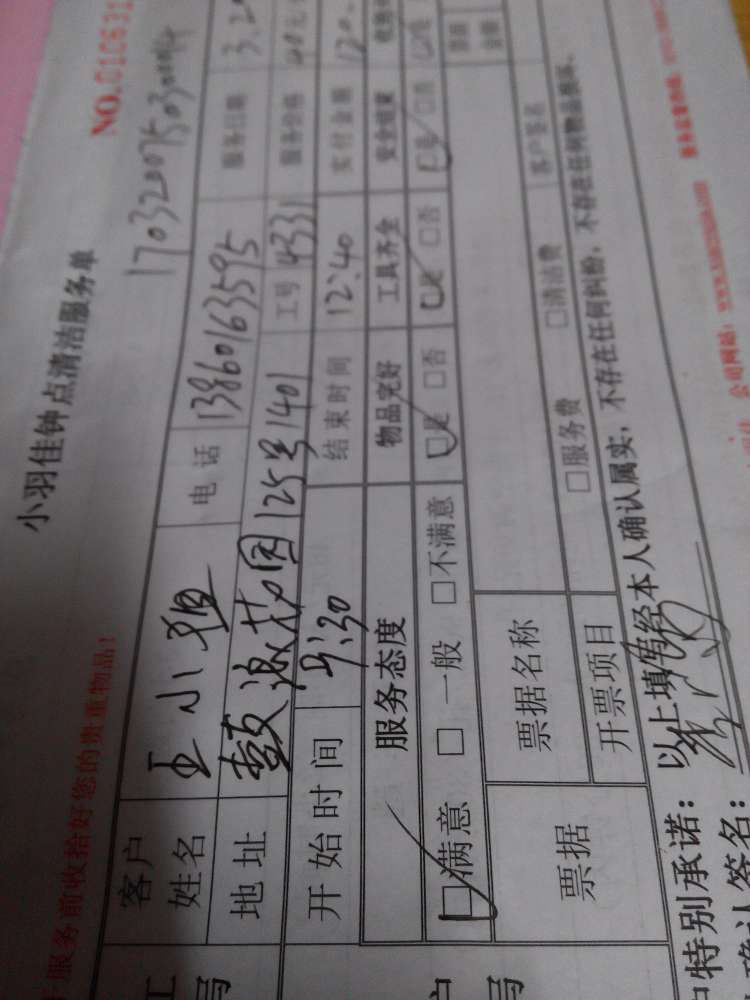 小羽佳钟点清洁服务单
NO.010631
服务前收拾好您的贵重物品!
客户姓名 王小姐 电话 13860163595 服务日期 3.20
地址 125号1401 工号 4331 服务价格
开始时间 9:30 结束时间 12:40 实付金额 120
服务态度 物品完好 工具齐全 安全结束
□满意 □一般 □不满意 □是 □否 □是 □否 □是 □否
票据 票据名称
开票项目 □服务费 □清洁费 客户签名
特别承诺:以上填写经本人确认属实,不存在任何纠纷,不存在任何物品损坏。
确认签名:
公司网站: